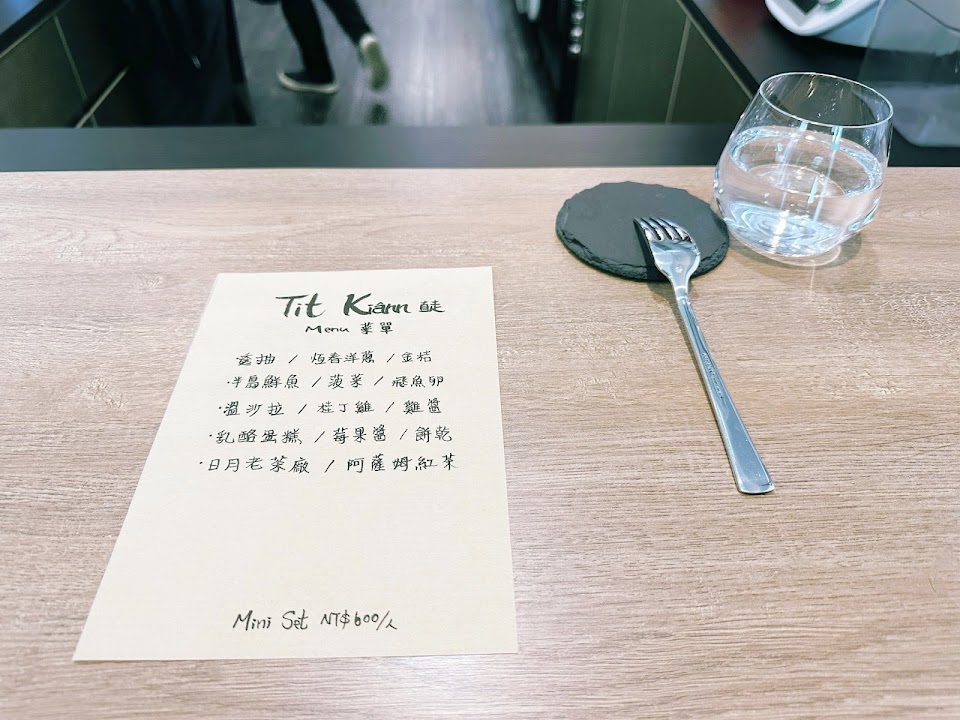 Tit Kiânn 直走
Menu 菜單
透抽 / 恆春洋蔥 / 金桔
·半島鮮魚 / 菠菜 / 飛魚卵
·溫沙拉 / 桂丁雞 / 雞醬
·乳酪蛋糕 / 莓果醬 / 餅乾
·日月老茶廠 / 阿薩姆紅茶
Mini Set NT$600/人